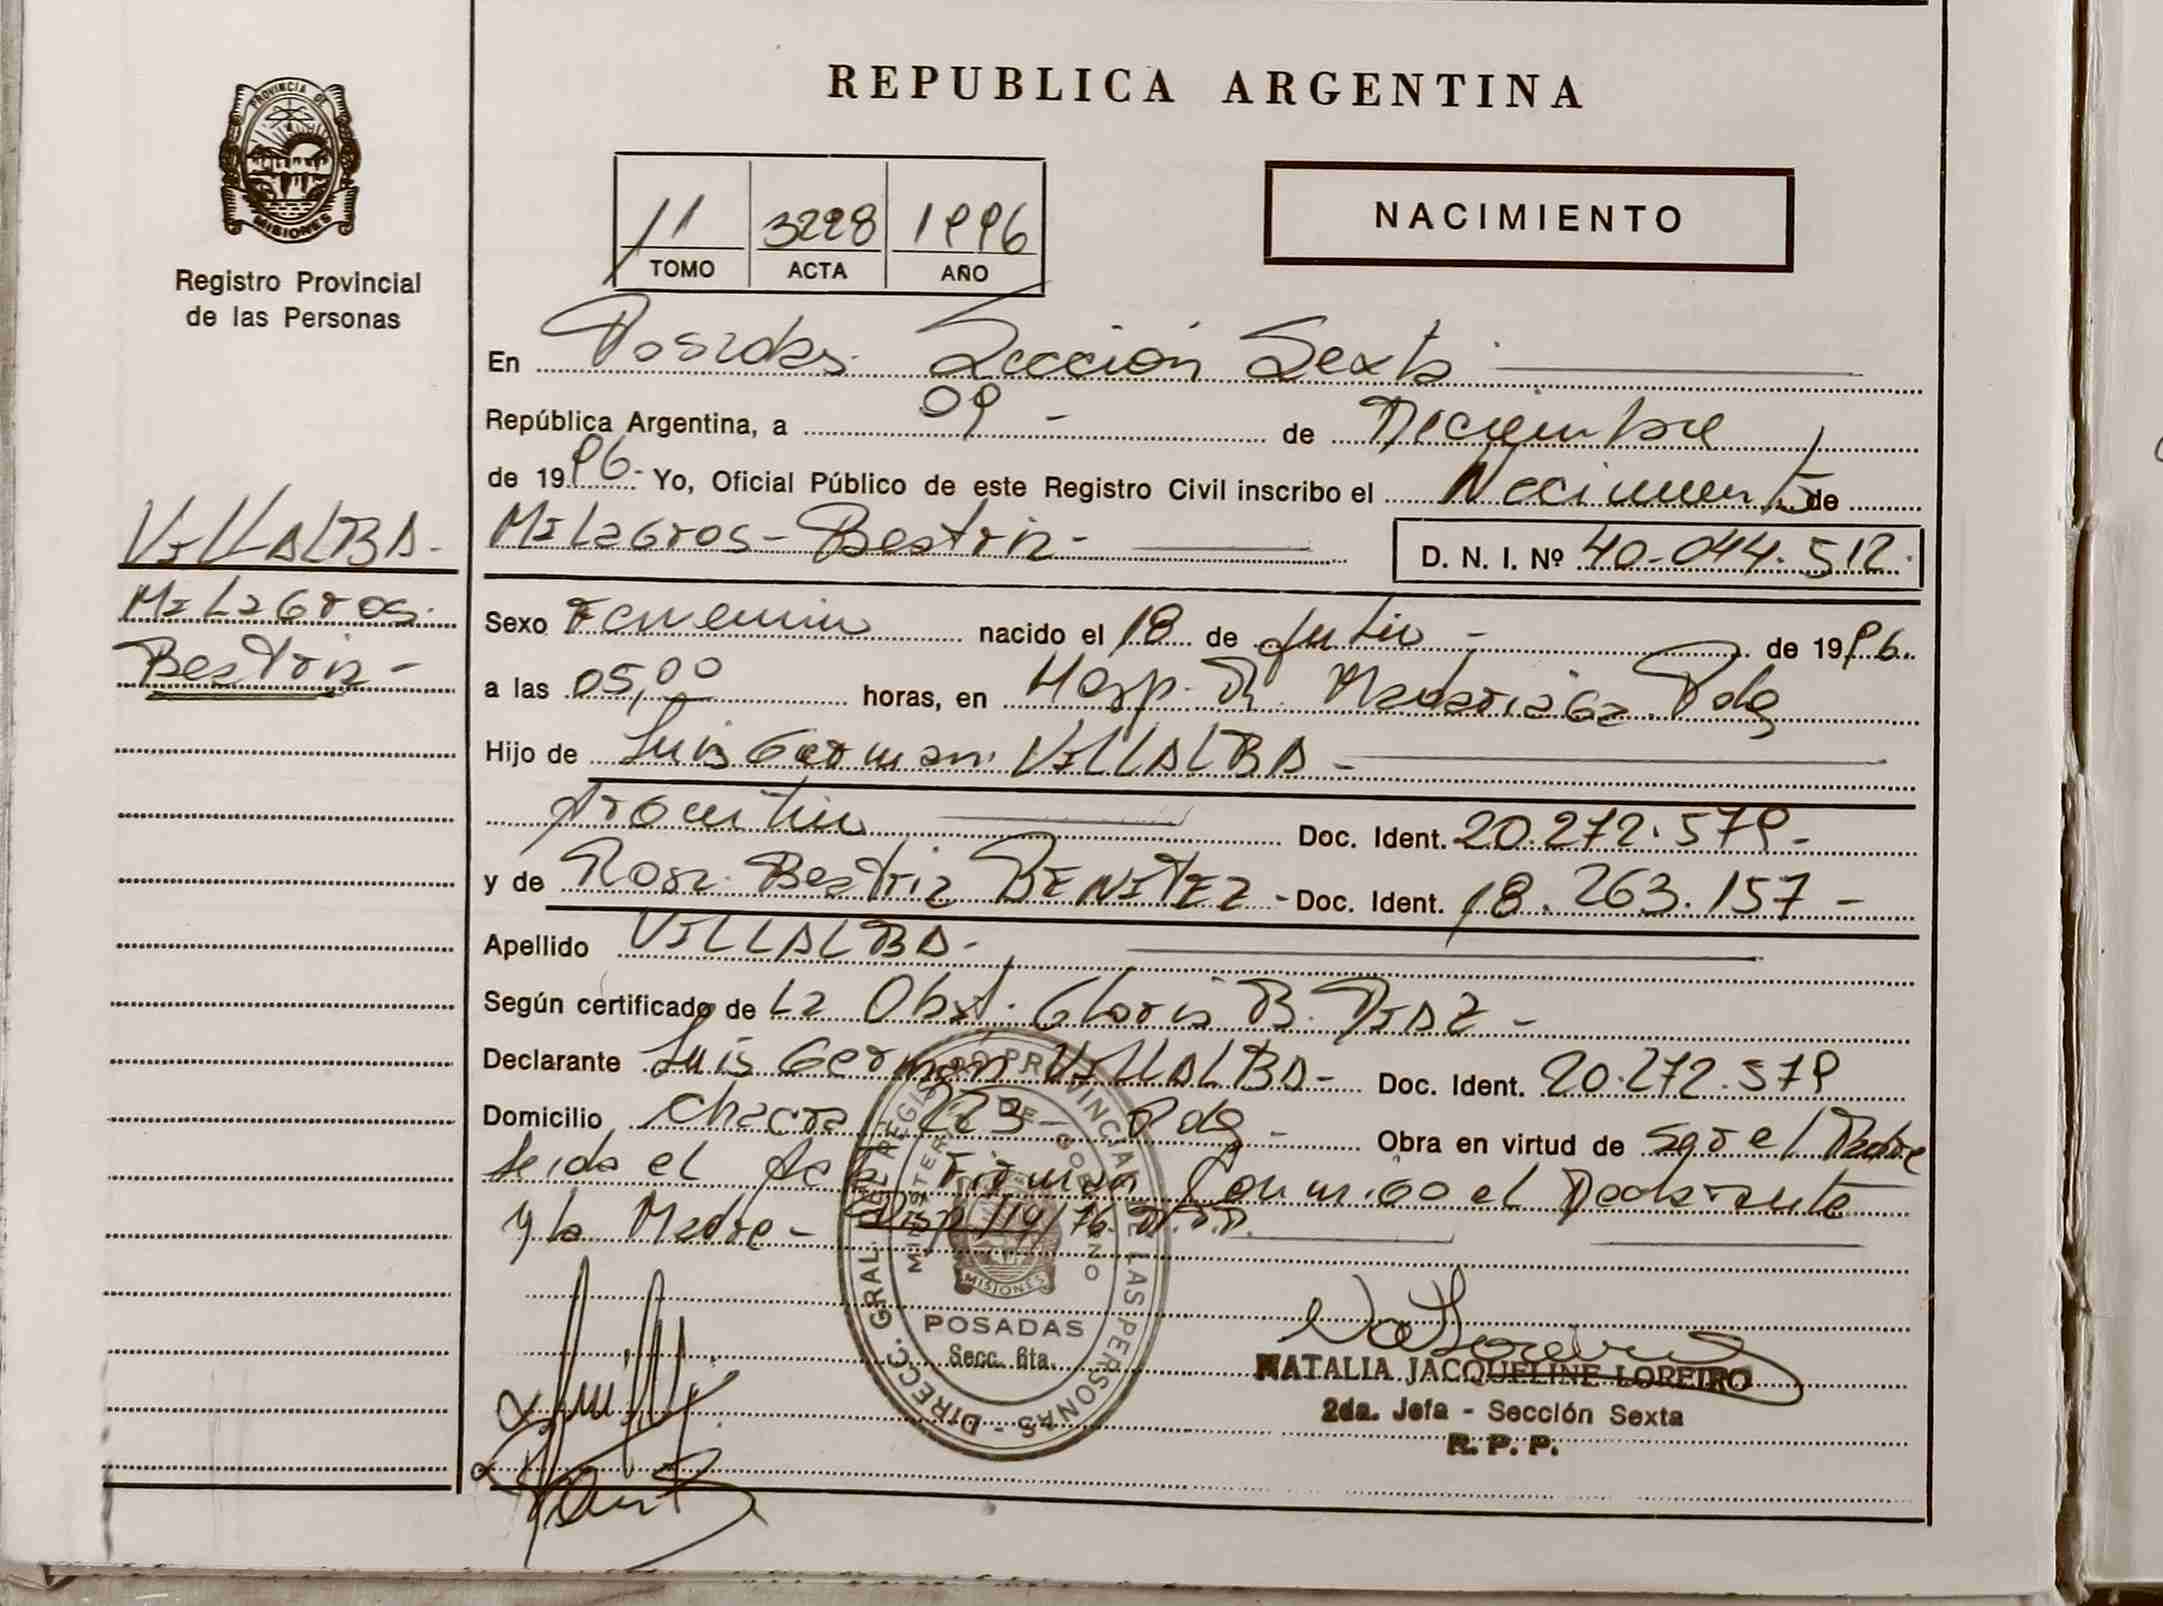 REPUBLICA ARGENTINA
PROVINCIA DE
MISIONES
Registro Provincial
de las Personas
11 3228 1996
TOMO ACTA AÑO
NACIMIENTO
En Posadas. Sección Sexta
República Argentina, a 09 - de Diciembre
de 1996.- Yo, Oficial Público de este Registro Civil inscribo el Nacimiento de
Milagros - Beatriz -
D. N. I. Nº 40.044.512.
VILLALBA -
Milagros.
Beatriz -
Sexo Femenino nacido el 18 de Julio - de 1996.
a las 05,00 horas, en Hosp. Dr. Madariaga Pdas
Hijo de Luis German VILLALBA -
Argentino Doc. Ident. 20.272.579 -
y de Rosa Beatriz BENITEZ - Doc. Ident. 18.263.157 -
Apellido VILLALBA -
Según certificado de La Obst. Gloria B. DIAZ -
Declarante Luis German VILLALBA - Doc. Ident. 20.272.579
Domicilio Chacra 223 - Pdas - Obra en virtud de ser el Padre
Leida el Acta Firman Conmigo el Declarante
y la Madre - Disp 119/76
DIRECC. GRAL. DEL REGISTRO PROVINCIAL DE LAS PERSONAS -
MINISTERIO DE GOBIERNO
MISIONES
POSADAS
Secc. 6ta.
NATALIA JACQUELINE LOREIRO
2da. Jefa - Sección Sexta
R. P. P.